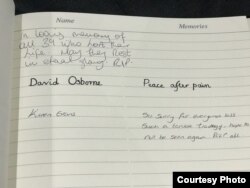 Name
Memories
In loving memory of
all 39 who lost their
life. May they Rest
in
R.I.P.
David Osborne
Peace after pain
Karen
So sorry for everyones loss
Such a terrible tradegy, hope to
not be seen again. R.I.P. all
Courtesy Photo